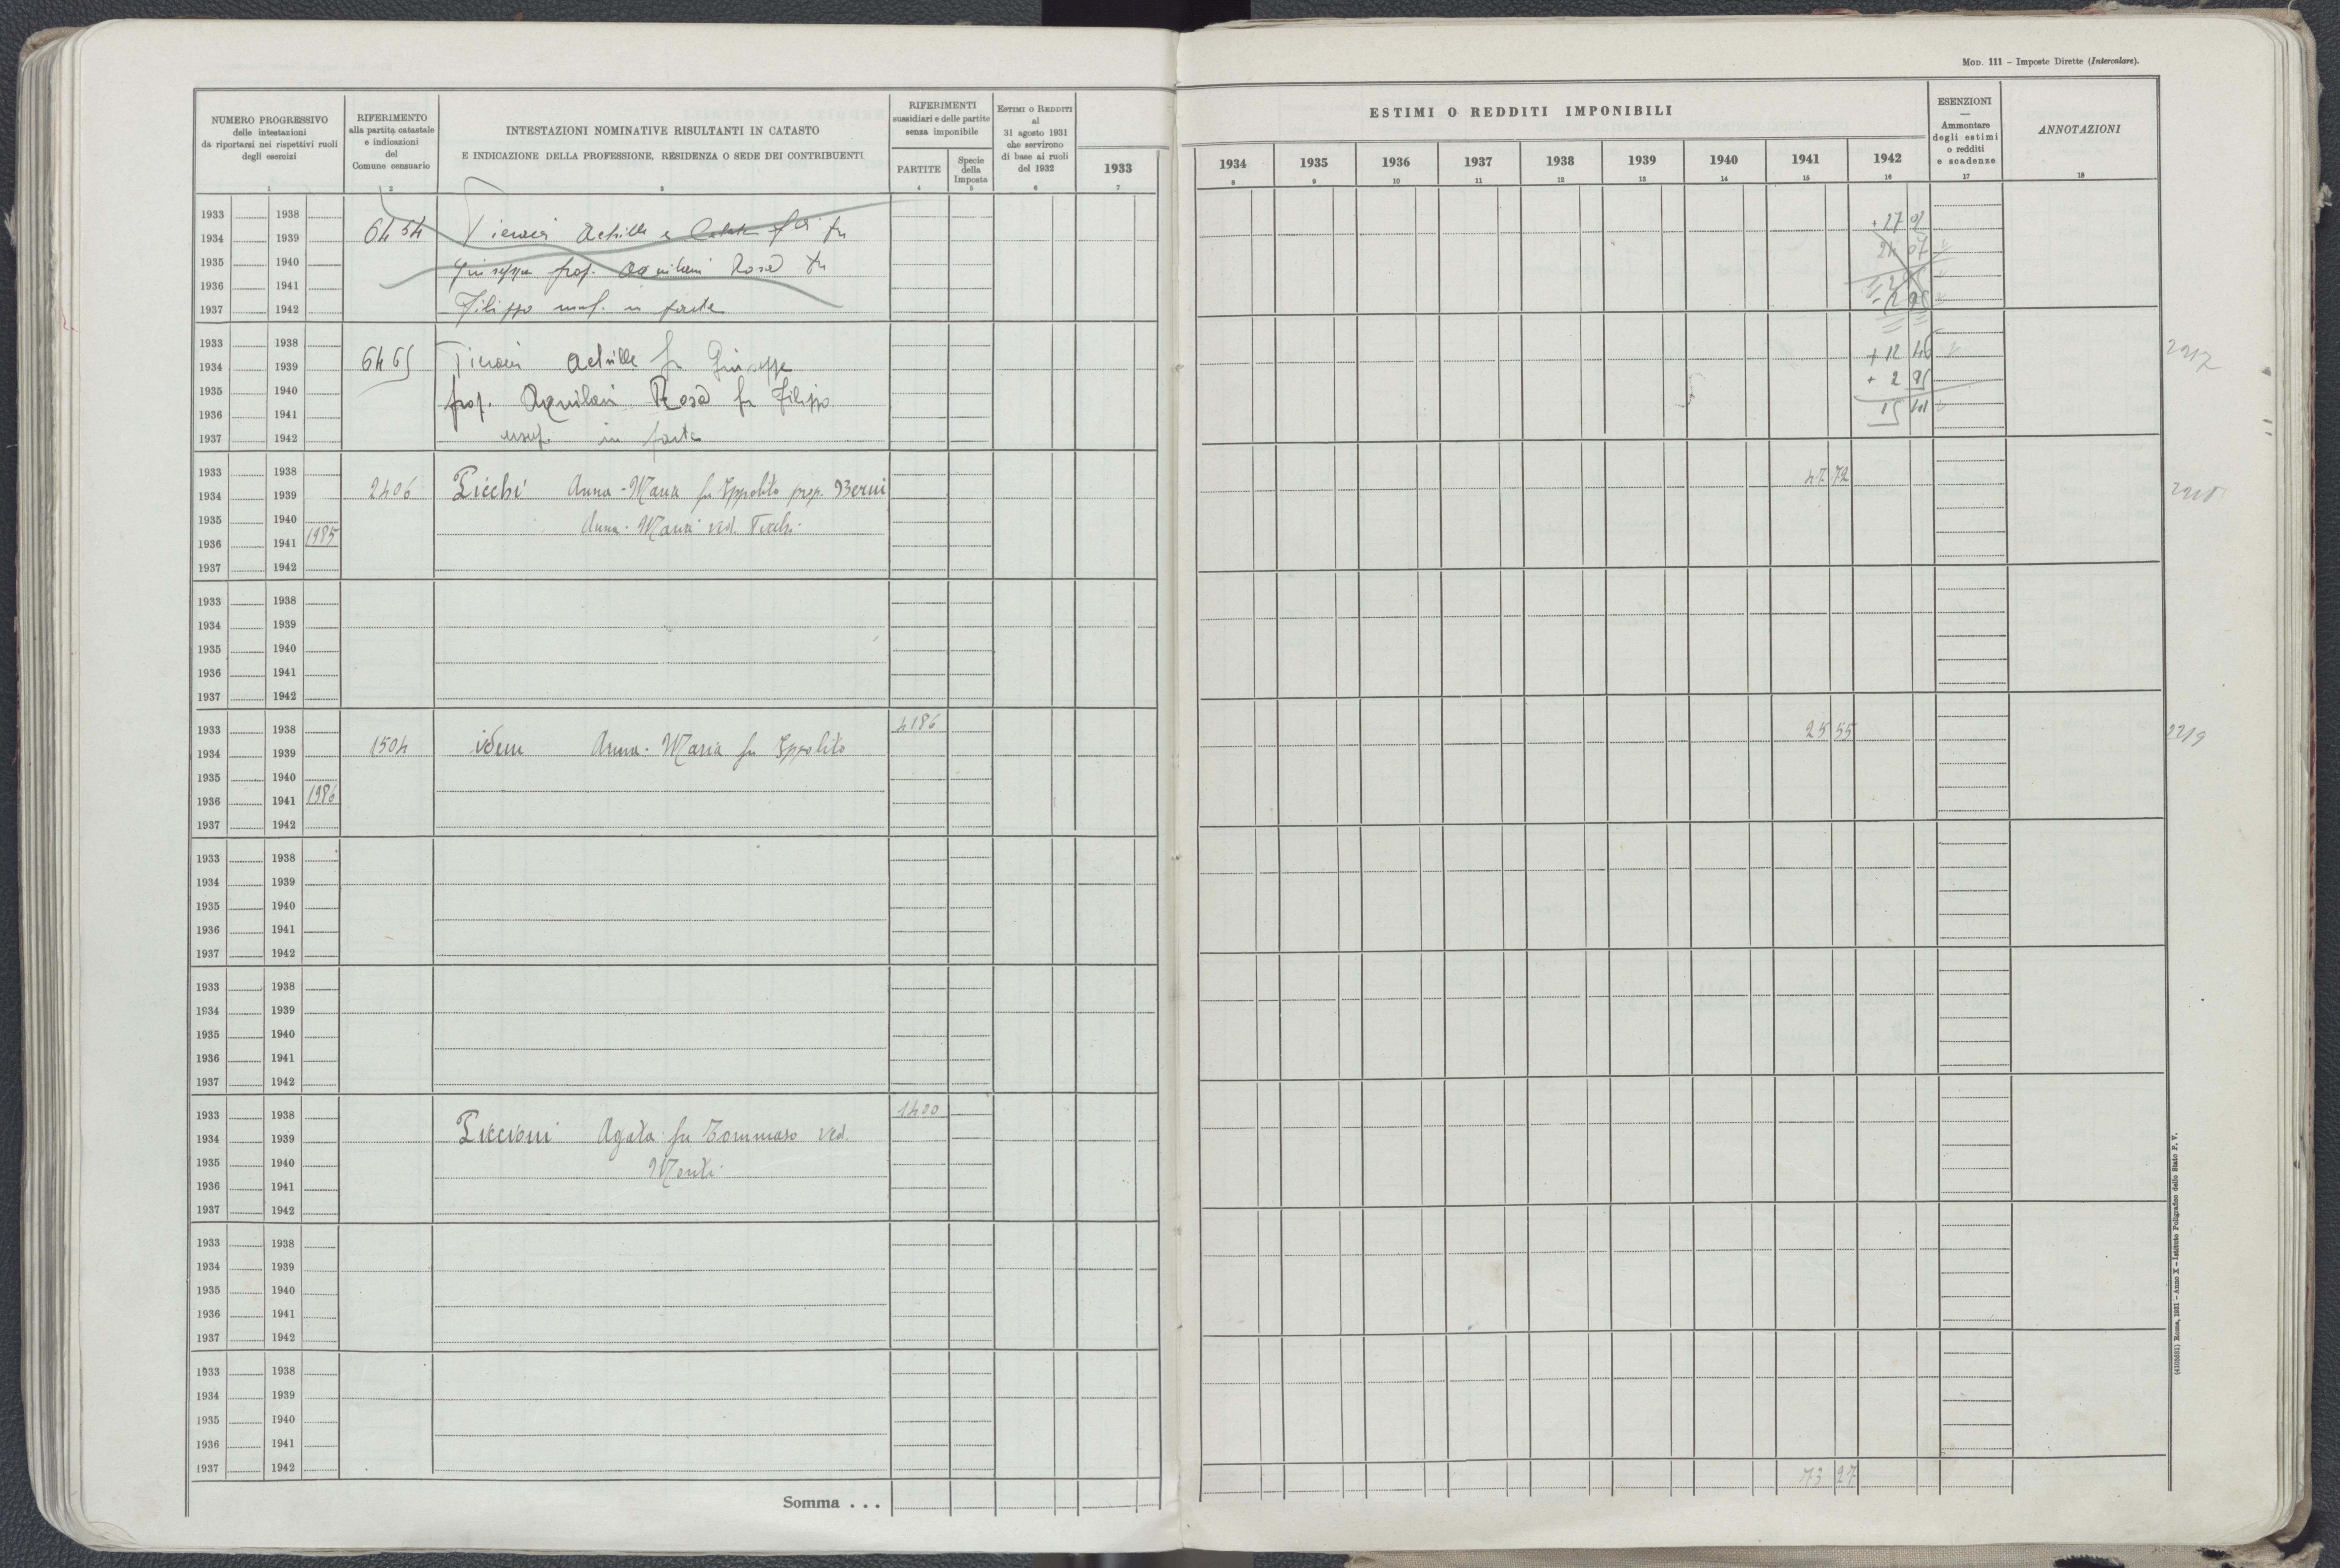 MOD. 111 – Imposte Dirette (Intercalare).
NUMERO PROGRESSIVO
delle intestazioni
da riportarsi nei rispettivi ruoli
degli esercizi
1
RIFERIMENTO
alla partita catastale
e indicazioni
del
Comune censuario
2
INTESTAZIONI NOMINATIVE RISULTANTI IN CATASTO
E INDICAZIONE DELLA PROFESSIONE, RESIDENZA O SEDE DEI CONTRIBUENTI
3
RIFERIMENTI
sussidiari e delle partite
senza imponibile
PARTITE
4
Specie
della
Imposta
5
ESTIMI O REDDITI
al
31 agosto 1931
che servirono
di base ai ruoli
del 1932
6
1933
7
ESTIMI O REDDITI IMPONIBILI
1934 1935 1936 1937 1938 1939 1940 1941 1942
8 9 10 11 12 13 14 15 16
ESENZIONI
—
Ammontare
degli estimi
o redditi
e scadenze
17
ANNOTAZIONI
18
1933 1938
1934 1939 6454 Achille e fu
1935 1940 Giuseppe prop. Aquilani Rosa fu
1936 1941
1937 1942 Filippo usuf. in parte
1933 1938
1934 1939 6465 Achille fu Giuseppe + 12 46
1935 1940 prop. Aquilani Rosa fu Filippo + 2 95
1936 1941 15 41
1937 1942 usuf. in parte
1933 1938 47 72
1934 1939 2406 Picchi Anna-Maria fu Ippolito prop. Berni
1935 1940 Anna-Maria ved. Picchi
1936 1941 1985
1937 1942
1933 1938
1934 1939
1935 1940
1936 1941
1937 1942
1933 1938 4186 25 55 2219
1934 1939 1504 idem Anna-Maria fu Ippolito
1935 1940
1936 1941 1986
1937 1942
1933 1938
1934 1939
1935 1940
1936 1941
1937 1942
1933 1938
1934 1939
1935 1940
1936 1941
1937 1942
1933 1938 1400
1934 1939 Piccioni Agata fu Tommaso ved.
1935 1940 Monti
1936 1941
1937 1942
1933 1938
1934 1939
1935 1940
1936 1941
1937 1942
1933 1938
1934 1939
1935 1940
1936 1941
1937 1942
Somma . . . 73 27
(4103531) Roma, 1931 – Anno X – Istituto Poligrafico dello Stato P. V.